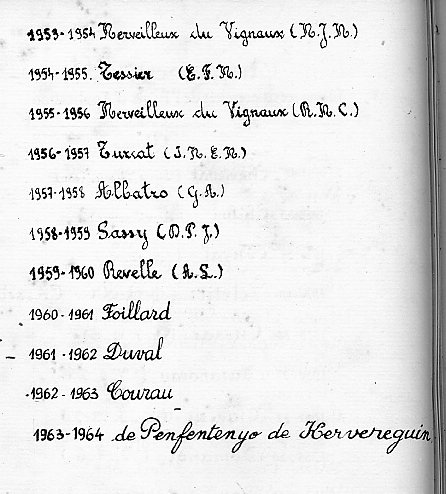 1953-1954 Merveilleux du Vignaux (M.J.M.)
1954-1955. Tessier (E.F.M.)
1955-1956 Merveilleux du Vignaux (R.M.C.)
1956-1957 Turcat (J.M.E.M.)
1957-1958 Albatro (G.A.)
1958-1959 Sassy (D.P.J.)
1959-1960 Revelle (A.L.)
1960-1961 Foillard
1961-1962 Duval
1962-1963 Courau
1963-1964 de Penfentenyo de Kervereguin